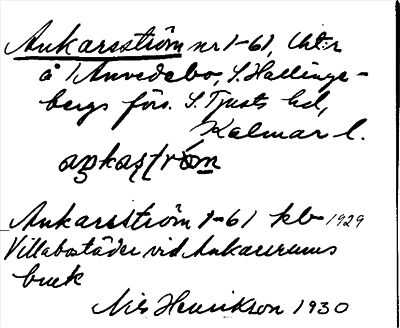 Ankarsström nr 1-61, Uk:r
å 1 Anvedebo, S. Hallinge-
bergs förs. S. Tjusts hd,
Kalmar l.
aŋkaström
Ankarsström 1-61 kb 1929
Villabostäder vid Ankarsrums
bruk
Nils Henrikson 1930